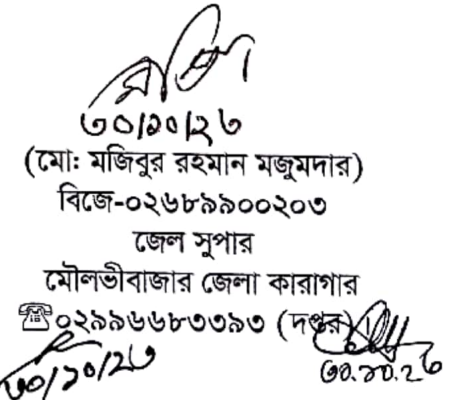 ৩০/১০/২৩
(মো: মজিবুর রহমান মজুমদার)
বিজে-০২৬৮৯৯০০২০৩
জেল সুপার
মৌলভীবাজার জেলা কারাগার
☎০২৯৯৬৬৮৩৩৯৩ (দপ্তর)
৩০/১০/২৩
৩০.১০.২৩